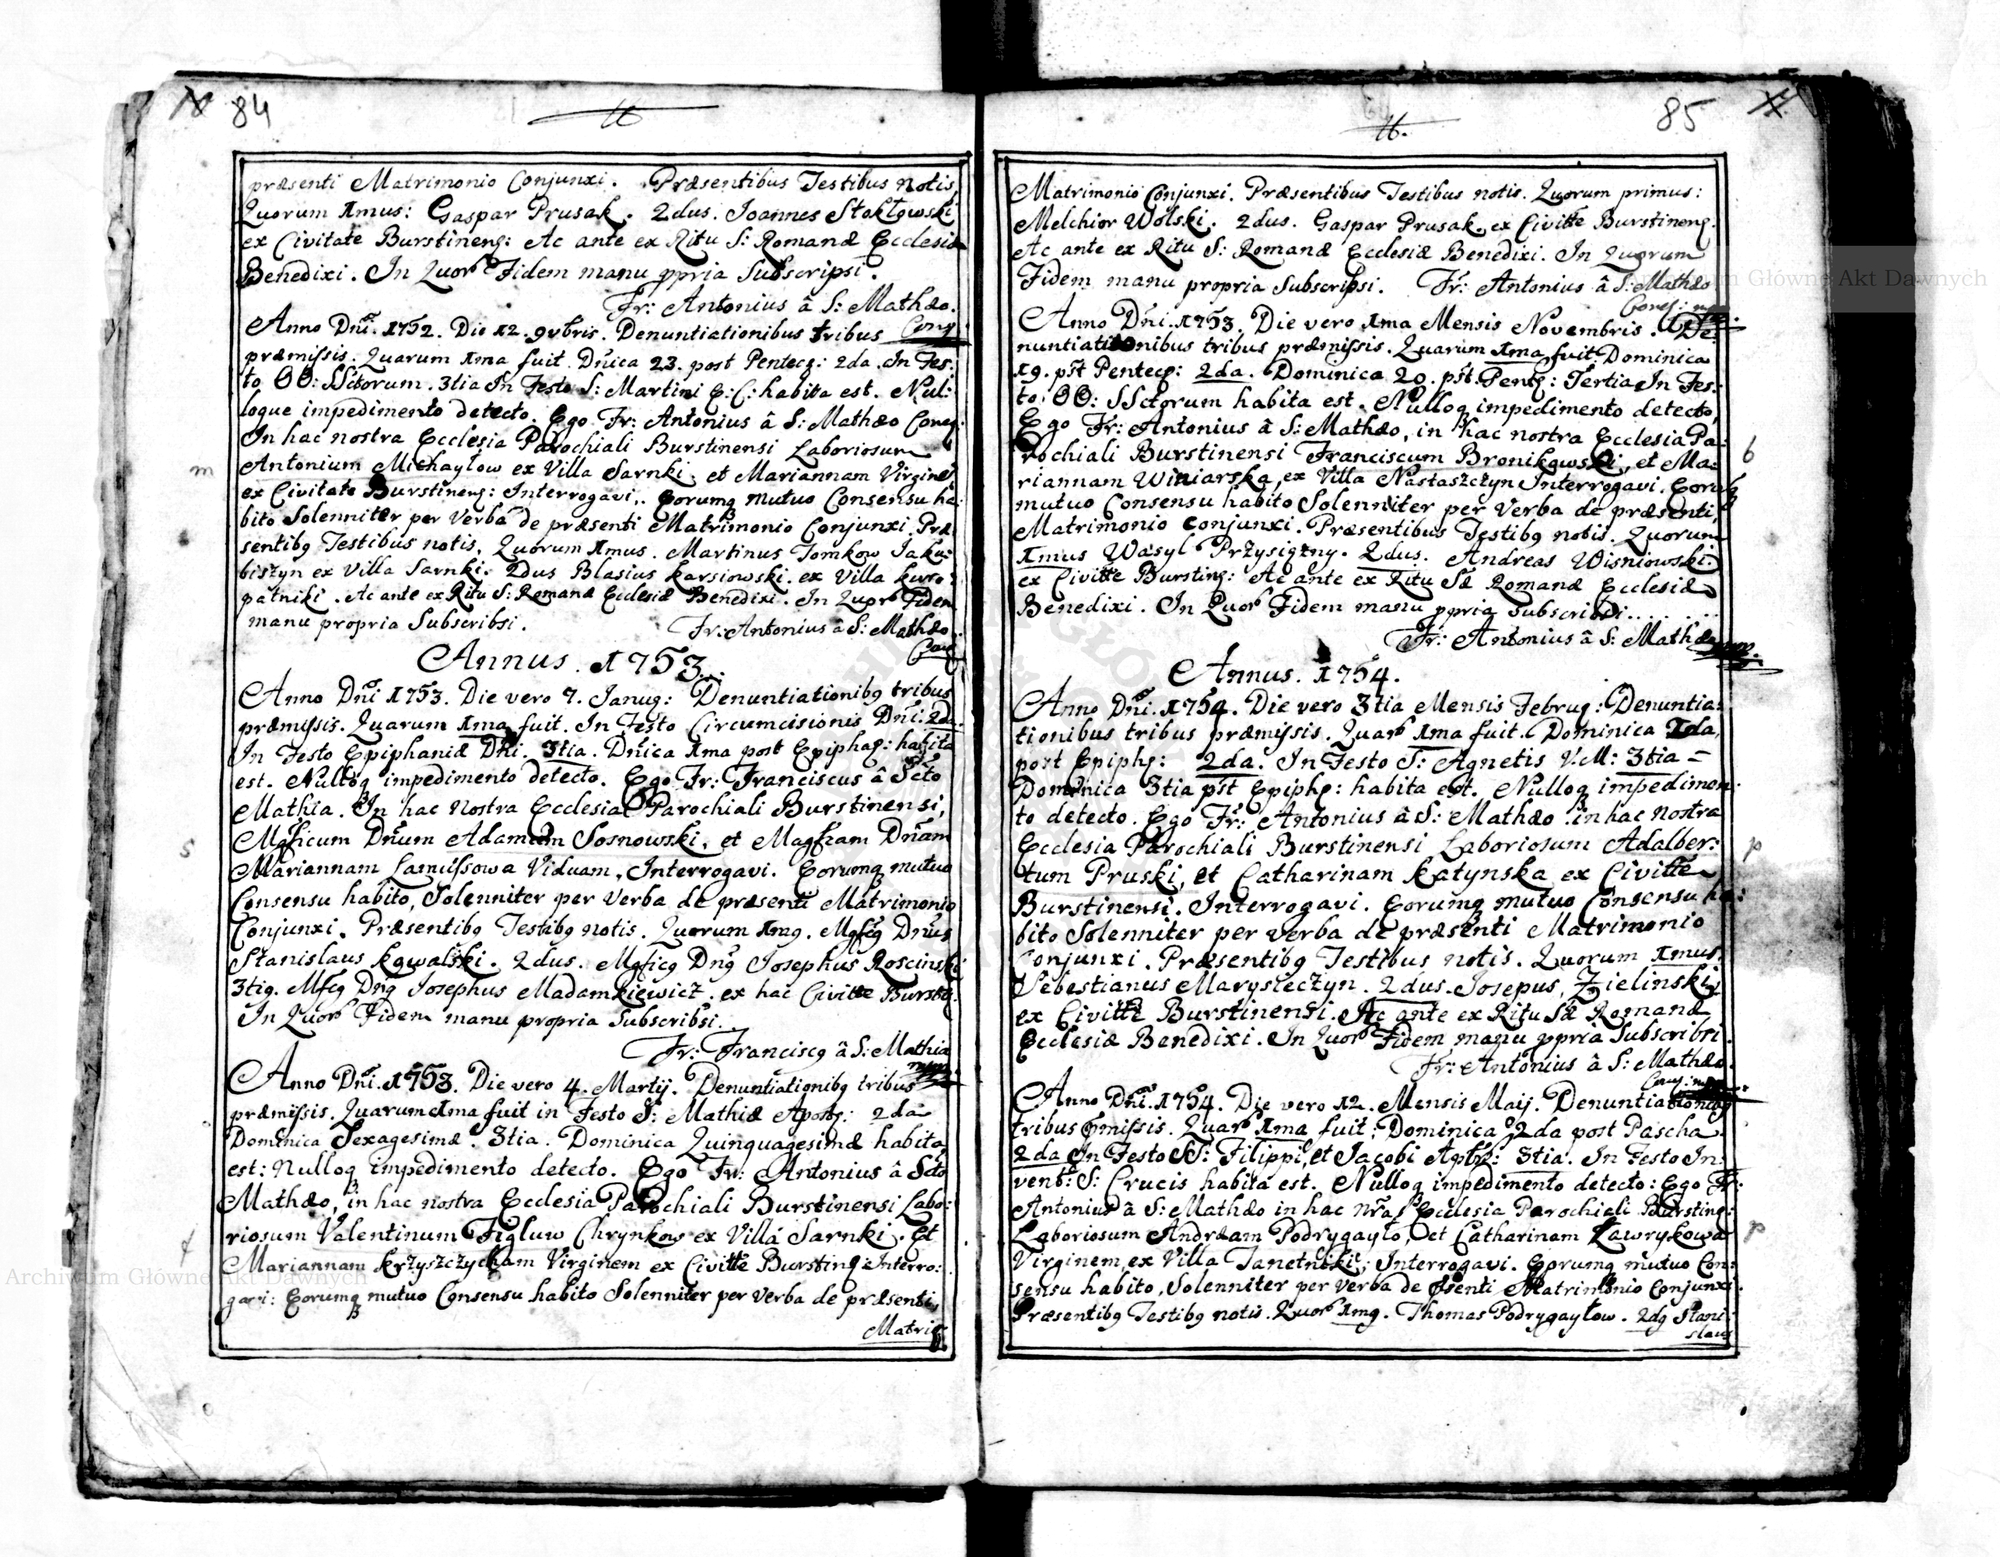 84
præsenti Matrimonio Conjunxi. Præsentibus Testibus notis,
Quorum 1mus: Gaspar Prusak. 2dus. Joannes Stokłowski
ex Civitate Burstinens: Ac ante ex Ritu S: Romanæ Ecclesiæ
Benedixi. In Quor Fidem manu ppria Subscripsi.
Fr: Antonius â S: Mathæo.
Conv:
Anno Dni. 1752. Die 12. 9vbris. Denuntiationibus tribus
præmissis. Quarum 1ma fuit. Dnica 23. post Pentec: 2da. In Fes:
to OO: SSctorum. 3tia In Festo S: Martini E: C: habita est. Nul:
loque impedimento detecto. Ego Fr: Antonius â S: Mathæo Conv:
In hac nostra Ecclesia Parochiali Burstinensi Laboriosum
Antonium Michayłow ex Villa Sarnki, et Mariannam Virginē
m
ex Civitate Burstinens: Interrogavi. Eorumq mutuo Consensu ha:
bito Solenniter per Verba de præsenti Matrimonio Conjunxi. Præ:
sentibq Testibus notis, Quorum 1mus. Martinus Tomkow Jaku:
biszyn ex Villa Sarnki. 2dus Blasius Karsiowski. ex Villa Kuro:
patniki. Ac ante ex Ritu S: Romanæ Ecclesiæ Benedixi. In Quor Fidem
manu propria Subscribsi.
Fr: Antonius â S: Mathæo
Conv
Annus. 1753.
Anno Dni 1753. Die vero 7. Janug: Denuntiationibq tribus
præmissis. Quarum 1ma fuit. In Festo Circumcisionis Dni: 2da.
In Festo Epiphaniæ Dni. 3tia. Dnica 1ma post Epiphag: habita
est. Nulloq impedimento detecto. Ego Fr: Franciscus â Scto
Mathia. In hac Nostra Ecclesia Parochiali Burstinensi,
Mgficum Dnum Adamum Sosnowski, et Magfcam Dnam
s
Mariannam Łamissowa Viduam, Interrogavi. Eorumq mutuo
Consensu habito, Solenniter per Verba de præsenti Matrimonio
Conjunxi. Præsentibq Testibq notis. Quorum 1mq. Mgfcq Dnus
Stanislaus Kowalski. 2dus. Mgficq Dnq Josephus Roscinski
3tiq. Mfcq Dnq Josephus Madamkiewicz. ex hac Civitte Burstē.
In Quor Fidem manu propria Subscribsi.
Fr: Franciscq â S: Mathia
mpp.
Anno Dni. 1753. Die vero 4. Martij. Denuntiationibq tribus
præmissis. Quarum 1ma fuit in Festo S: Mathiæ Apost: 2da
Dominica Sexagesimæ. 3tia. Dominica Quinquagesimæ habita
est: Nulloq impedimento detecto. Ego Fr: Antonius â Scto
Mathæo, in hac nostra Ecclesia Parochiali Burstinensi Labo:
riosum Valentinum Figluw Chrynkow ex Villa Sarnki. Et
f
Mariannam Krzyszczycham Virginem ex Civitte Bursting: Interro:
gavi: Eorumq mutuo Consensu habito Solenniter per Verba de præsenti,
Matri
85
Matrimonio Conjunxi. Præsentibus Testibus notis. Quorum primus:
Melchior Wolski. 2dus. Gaspar Prusak, ex Civitte Burstinens.
Ac ante ex Ritu S: Romanæ Ecclesiæ Benedixi. In Quorum
Fidem manu propria Subscripsi. Fr: Antonius â S: Mathæo
Conv: mpp.
Anno Dni. 1753. Die vero 1ma Mensis Novembris. De:
nuntiationibus tribus præmissis. Quarum 1ma fuit Dominica
19. pst Pentec: 2da. Dominica 20. pst. Pent: Tertia In Fes:
to OO: SSctorum habita est. Nulloq impedimento detecto,
Ego Fr: Antonius â S: Mathæo, in hac nostra Ecclesia Pa:
rochiali Burstinensi Franciscum Bronikowski, et Ma:
b
riannam Winiarska, ex Villa Nastaszczyn Interrogavi. Eorumq
mutuo Consensu habito Solenniter per Verba de præsenti,
Matrimonio Conjunxi. Præsentibus Testibq notis. Quorum
1mus Wasyl Przysiężny. 2dus. Andreas Wisniowski.
ex Civitte Bursting: Ac ante ex Ritu Sæ Romanæ Ecclesiæ
Benedixi. In Quor Fidem manu ppria Subscribsi.
Fr: Antonius â S: Mathæo
mpp.
Annus. 1754.
Anno Dni. 1754. Die vero 3tia Mensis Februg: Denuntia:
tionibus tribus præmissis. Quar 1ma fuit. Dominica 2da,
post Epiphg: 2da. In Festo S: Agnetis V: M: 3tia =
Dominica 3tia pst Epiphg: habita est. Nulloq impedimen:
to detecto. Ego Fr: Antonius â S: Mathæo in hac nostra
Ecclesia Parochiali Burstinensi Laboriosum Adalber:
p
tum Pruski, et Catharinam Katynska ex Civitte
Burstinensi. Interrogavi. Eorumq mutuo Consensu ha:
bito Solenniter per verba de præsenti Matrimonio
Conjunxi. Præsentibq Testibus notis. Quorum 1mus.
Sebestianus Maryszeczyn. 2dus. Josepus, Zielinski,
ex Civitte Burstinensi. Ac ante ex Ritu Sæ Romanæ
Ecclesiæ Benedixi. In Quor Fidem manu ppria Subscribsi.
Fr: Antonius â S: Mathæo.
Conv: mpp.
Anno Dni. 1754. Die vero 12. Mensis Maij. Denuntiationibq
tribus pmissis. Quar 1ma fuit: Dominica 2da post Pascha
2da In Festo SS: Filippi, et Jacobi Aptbr: 3tia. In Festo In:
vent: S: Crucis habita est. Nulloq impedimento detecto: Ego Fr:
Antonius â S: Mathæo in hac nra Ecclesia Parochiali Bursting:
Laboriosum Andræam Podrygayło, et Catharinam Ławrykowa
p
Virginem, ex Villa Tanetniki, Interrogavi. Eorumq mutuo Con:
sensu habito, Solenniter per verba de psenti Matrimonio Conjunxi.
Præsentibq Testibq notis. Quor 1mq. Thomas Podrygayłow. 2dq Stani
slaus
Archiwum Główne Akt Dawnych
Archiwum Główne Akt Dawnych